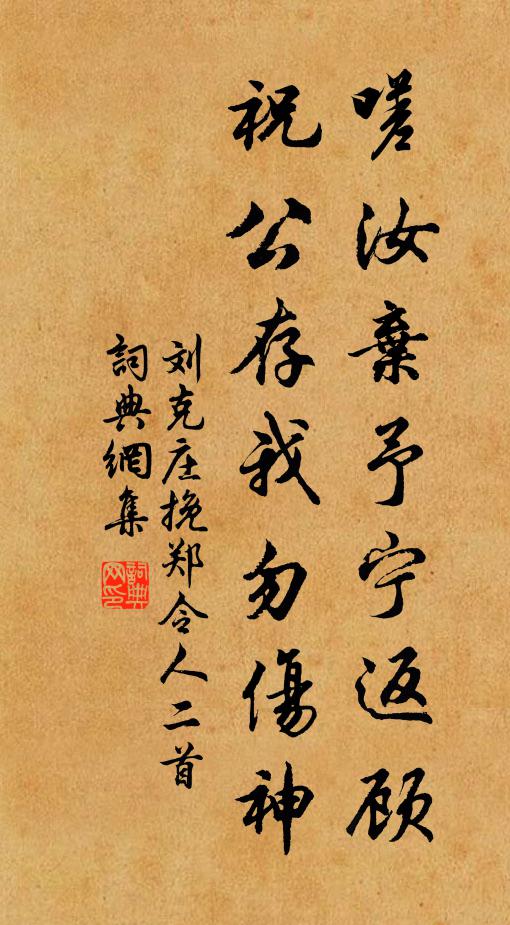 嗟汝棄予宁返顾
祝公存我勿傷神
刘克庄挽郑令人二首
詞典網集
詞典网印